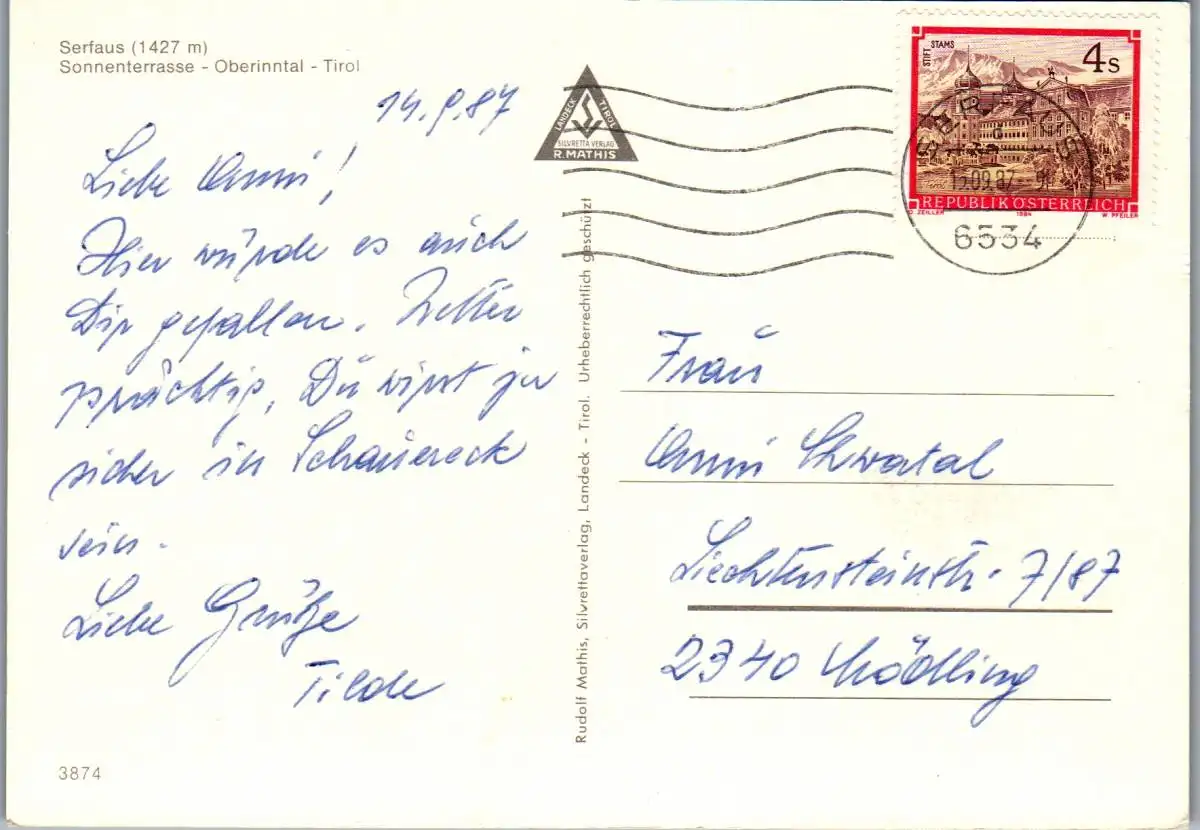 Serfaus (1427 m)
Sonnenterrasse - Oberinntal - Tirol
14.9.87
Liebe Anni!
Hier würde es auch
Dir gefallen. Wetter
prächtig, Du wirst ja
sicher in Schauereck
sein.
Liebe Grüße
Tilde
3874
LANDECK TIROL
SILVRETTA VERLAG
R. MATHIS
Rudolf Mathis, Silvrettaverlag, Landeck - Tirol. Urheberrechtlich geschützt
STIFT STAMS
4s
REPUBLIK ÖSTERREICH
O. ZEILLER 1984 W. PFEILER
15.09.87
6534
Frau
Anni Chwatal
Liechtensteinstr. 7/87
2340 Mödling